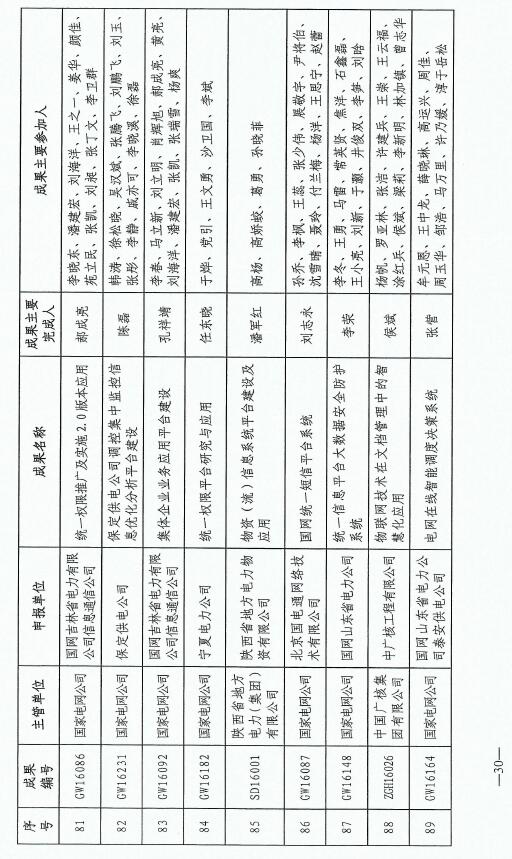 序号 成果编号 主管单位 申报单位 成果名称 成果主要完成人 成果主要参加人
81 GW16086 国家电网公司 国网吉林省电力有限公司信息通信公司 统一权限推广及实施2.0版本应用 郝成亮 李晓东、潘建宏、刘海洋、王之一、姜华、颜佳、
苑立民、张凯、刘昶、张丁文、李卫群
82 GW16231 国家电网公司 保定供电公司 保定供电公司调控集中监控信息优化分析平台建设 陈磊 韩涛、徐松晓、吴汉斌、张腾飞、刘鹏飞、刘玉、
张彤、李静、戚亦可、李晓溪、徐磊
83 GW16092 国家电网公司 国网吉林省电力有限公司信息通信公司 集体企业业务应用平台建设 孔祥靖 李春、马立新、刘立明、肖辉旭、郝成亮、黄亮、
刘海洋、潘建宏、张凯、张瑞雪、杨爽
84 GW16182 国家电网公司 宁夏电力公司 统一权限平台研究与应用 任东晓 于烨、党引、王文勇、沙卫国、李斌
85 SD16001 陕西省地方电力(集团)有限公司 陕西省地方电力物资有限公司 物资(流)信息系统平台建设及应用 潘军红 高杨、高娇蛟、葛勇、孙晓菲
86 GW16087 国家电网公司 北京国电通网络技术有限公司 国网统一短信平台系统 刘志永 孙乔、李枫、王蕊、张少伟、展敬宇、尹将伯、
沈雪晴、聂玲、付兰梅、杨洋、王思宁、赵蕾
87 GW16148 国家电网公司 国网山东省电力公司 统一信息平台大数据安全防护系统 李荣 李冬、王勇、马雷、常英贤、焦洋、石鑫磊、
王小亮、刘新、于灏、井俊双、李笋、刘晗
88 ZGH16026 中国广核集团有限公司 中广核工程有限公司 物联网技术在文档管理中的智慧化应用 侯斌 杨帆、罗亚林、张浩、许建兵、王崇、王云福、
涂红兵、侯斌、梁莉、李新明、林加镇、曾志华
89 GW16164 国家电网公司 国网山东省电力公司泰安供电公司 电网在线智能调度决策系统 张雷 牟元恩、王中龙、薛晓琳、高运兴、周佳、
周玉华、邹浩、马万里、许乃媛、淳于岳松
—30—